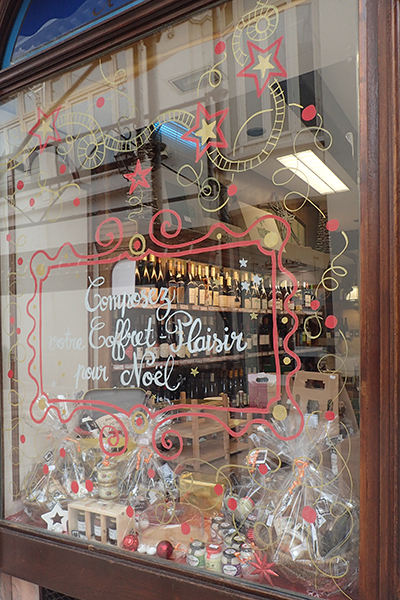 Composez
notre Coffret-Plaisir
pour Noël